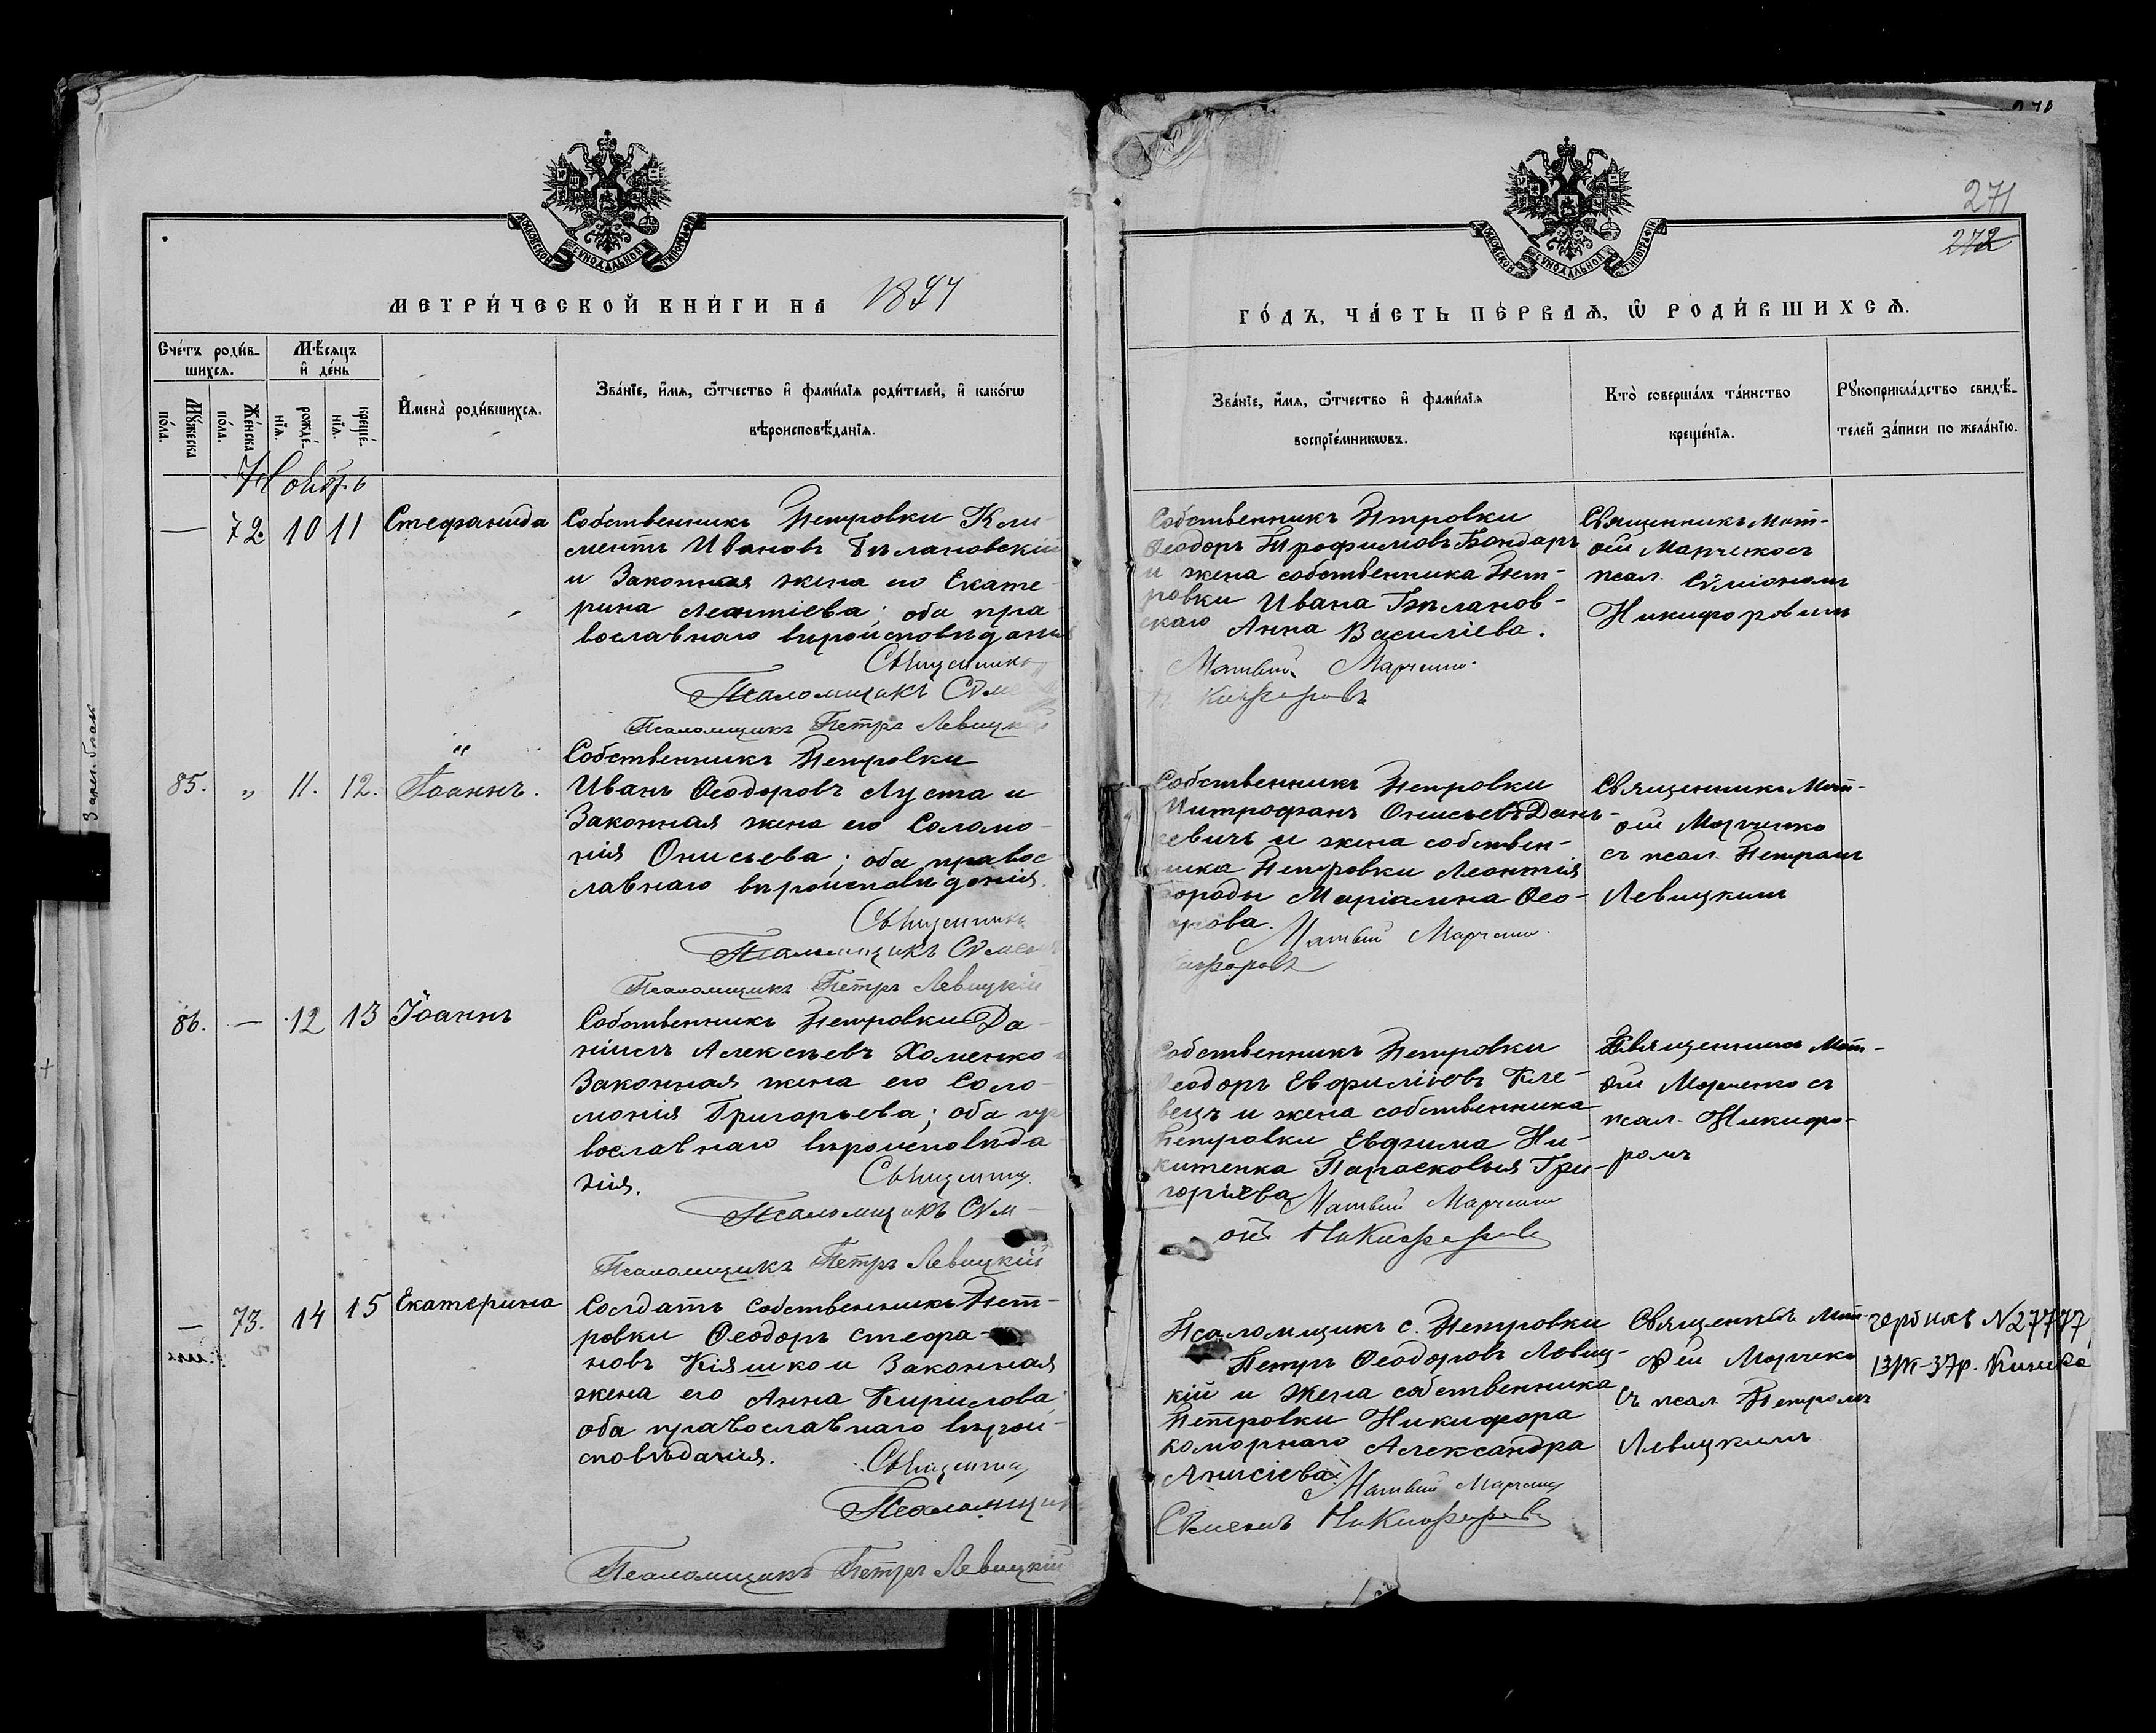 271
272
МОСКОВСКОЙ СѴНОДАЛЬНОЙ ТИПОГРАФІИ
МЕТРИ́ЧЕСКОЙ КНИ́ГИ НА 1897
Сче́тъ роди́в-
шихсѧ.
Мѣ́сѧцъ
и҆ де́нь
Мꙋ́жеска
по́ла.
Же́нска
по́ла.
рожде́-
нїѧ.
креще́-
нїѧ.
И҆мена̀ роди́вшихсѧ.
Зва́нїе, и҆́мѧ, ѻ҆́тчество и҆ фами́лїѧ роди́телей, и҆ како́гѡ
вѣроисповѣ́данїѧ.
Ноябрь
— 72. 10 11 Стефанида
Собственникъ Петровки Кли-
ментъ Ивановъ Бѣлановскій
и Законная жена его Екате-
рина Леонтіева; оба пра-
вославнаго вѣроисповѣданія
Священникъ
Псаломщикъ
Псаломщикъ Петръ Левицкій
85. „ 11. 12. Іоаннъ.
Собственникъ Петровки
Иванъ Ѳеодоровъ Луста и
Законная жена его Соломо-
нія Онисьева; оба правос
лавнаго вѣроисповѣданія.
Священникъ
Псаломщикъ
Псаломщикъ Петръ Левицкій
86. — 12 13 Іоаннъ
Собственникъ Петровки Да-
ніилъ Алексѣевъ Хоменко
Законная жена его Соло-
монія Григорьева; оба пра
вославнаго вѣроисповѣда
нія.
Священникъ
Псаломщикъ Сѵм-
Псаломщикъ Петръ Левицкій
— 73. 14 15 Екатерина
Солдатъ собственникъ Пет-
ровки Ѳеодоръ Стефа-
новъ Кіяшко и Законная
жена его Анна Кирилова;
оба православнаго вѣрои-
сповѣданія.
Священникъ
Псаломщикъ
Псаломщикъ Петръ Левицкій
МОСКОВСКОЙ СѴНОДАЛЬНОЙ ТИПОГРАФІИ
ГО́ДЪ, ЧА́СТЬ ПЕ́РВАѦ, Ѡ҆ РОДИ́ВШИХСѦ.
Зва́нїе, и҆́мѧ, ѻ҆́тчество и҆ фами́лїѧ
воспрїе́мникѡвъ.
Кто̀ соверша́лъ та́инство
креще́нїѧ.
Рꙋкоприкла́дство свидѣ́-
телей за́писи по жела́нїю.
Собственникъ Петровки
Ѳеодоръ Трофимовъ Бондаръ
и жена собственника Пет-
ровки Ивана Бѣланов-
скаго Анна Василіева.
Матвій Марченко
Никифоровъ
Священникъ Мат-
ѳій Марченко съ
псал. Сѵміономъ
Никифоровымъ
Собственникъ Петровки
Митрофанъ Онисьевъ Дань-
севичъ и жена собствен-
ника Петровки Леонтія
Бороды Маріамна Ѳео-
дорова.
Матвій Марченко
Никифоровъ
Священникъ Мат-
ѳій Марченко
съ псал. Петромъ
Левицкимъ
Собственникъ Петровки
Ѳеодоръ Евфиміевъ Кле-
вецъ и жена собственника
Петровки Евфима Ни-
китенка Парасковья Гри-
горіева
Матвій Марченко
Никифоровъ
Священникъ Мат-
ѳій Марченко съ
псал. Никифо-
ромъ
Псаломщикъ с. Петровки
Петръ Ѳеодоровъ Левиц-
кій и жена собственника
Петровки Никифора
коморнаго Александра
Анисіева
Матвій Марченко
Сѵмеонъ Никифоровъ
Священникъ Мат-
ѳій Марченко
съ псал. Петромъ
Левицкимъ